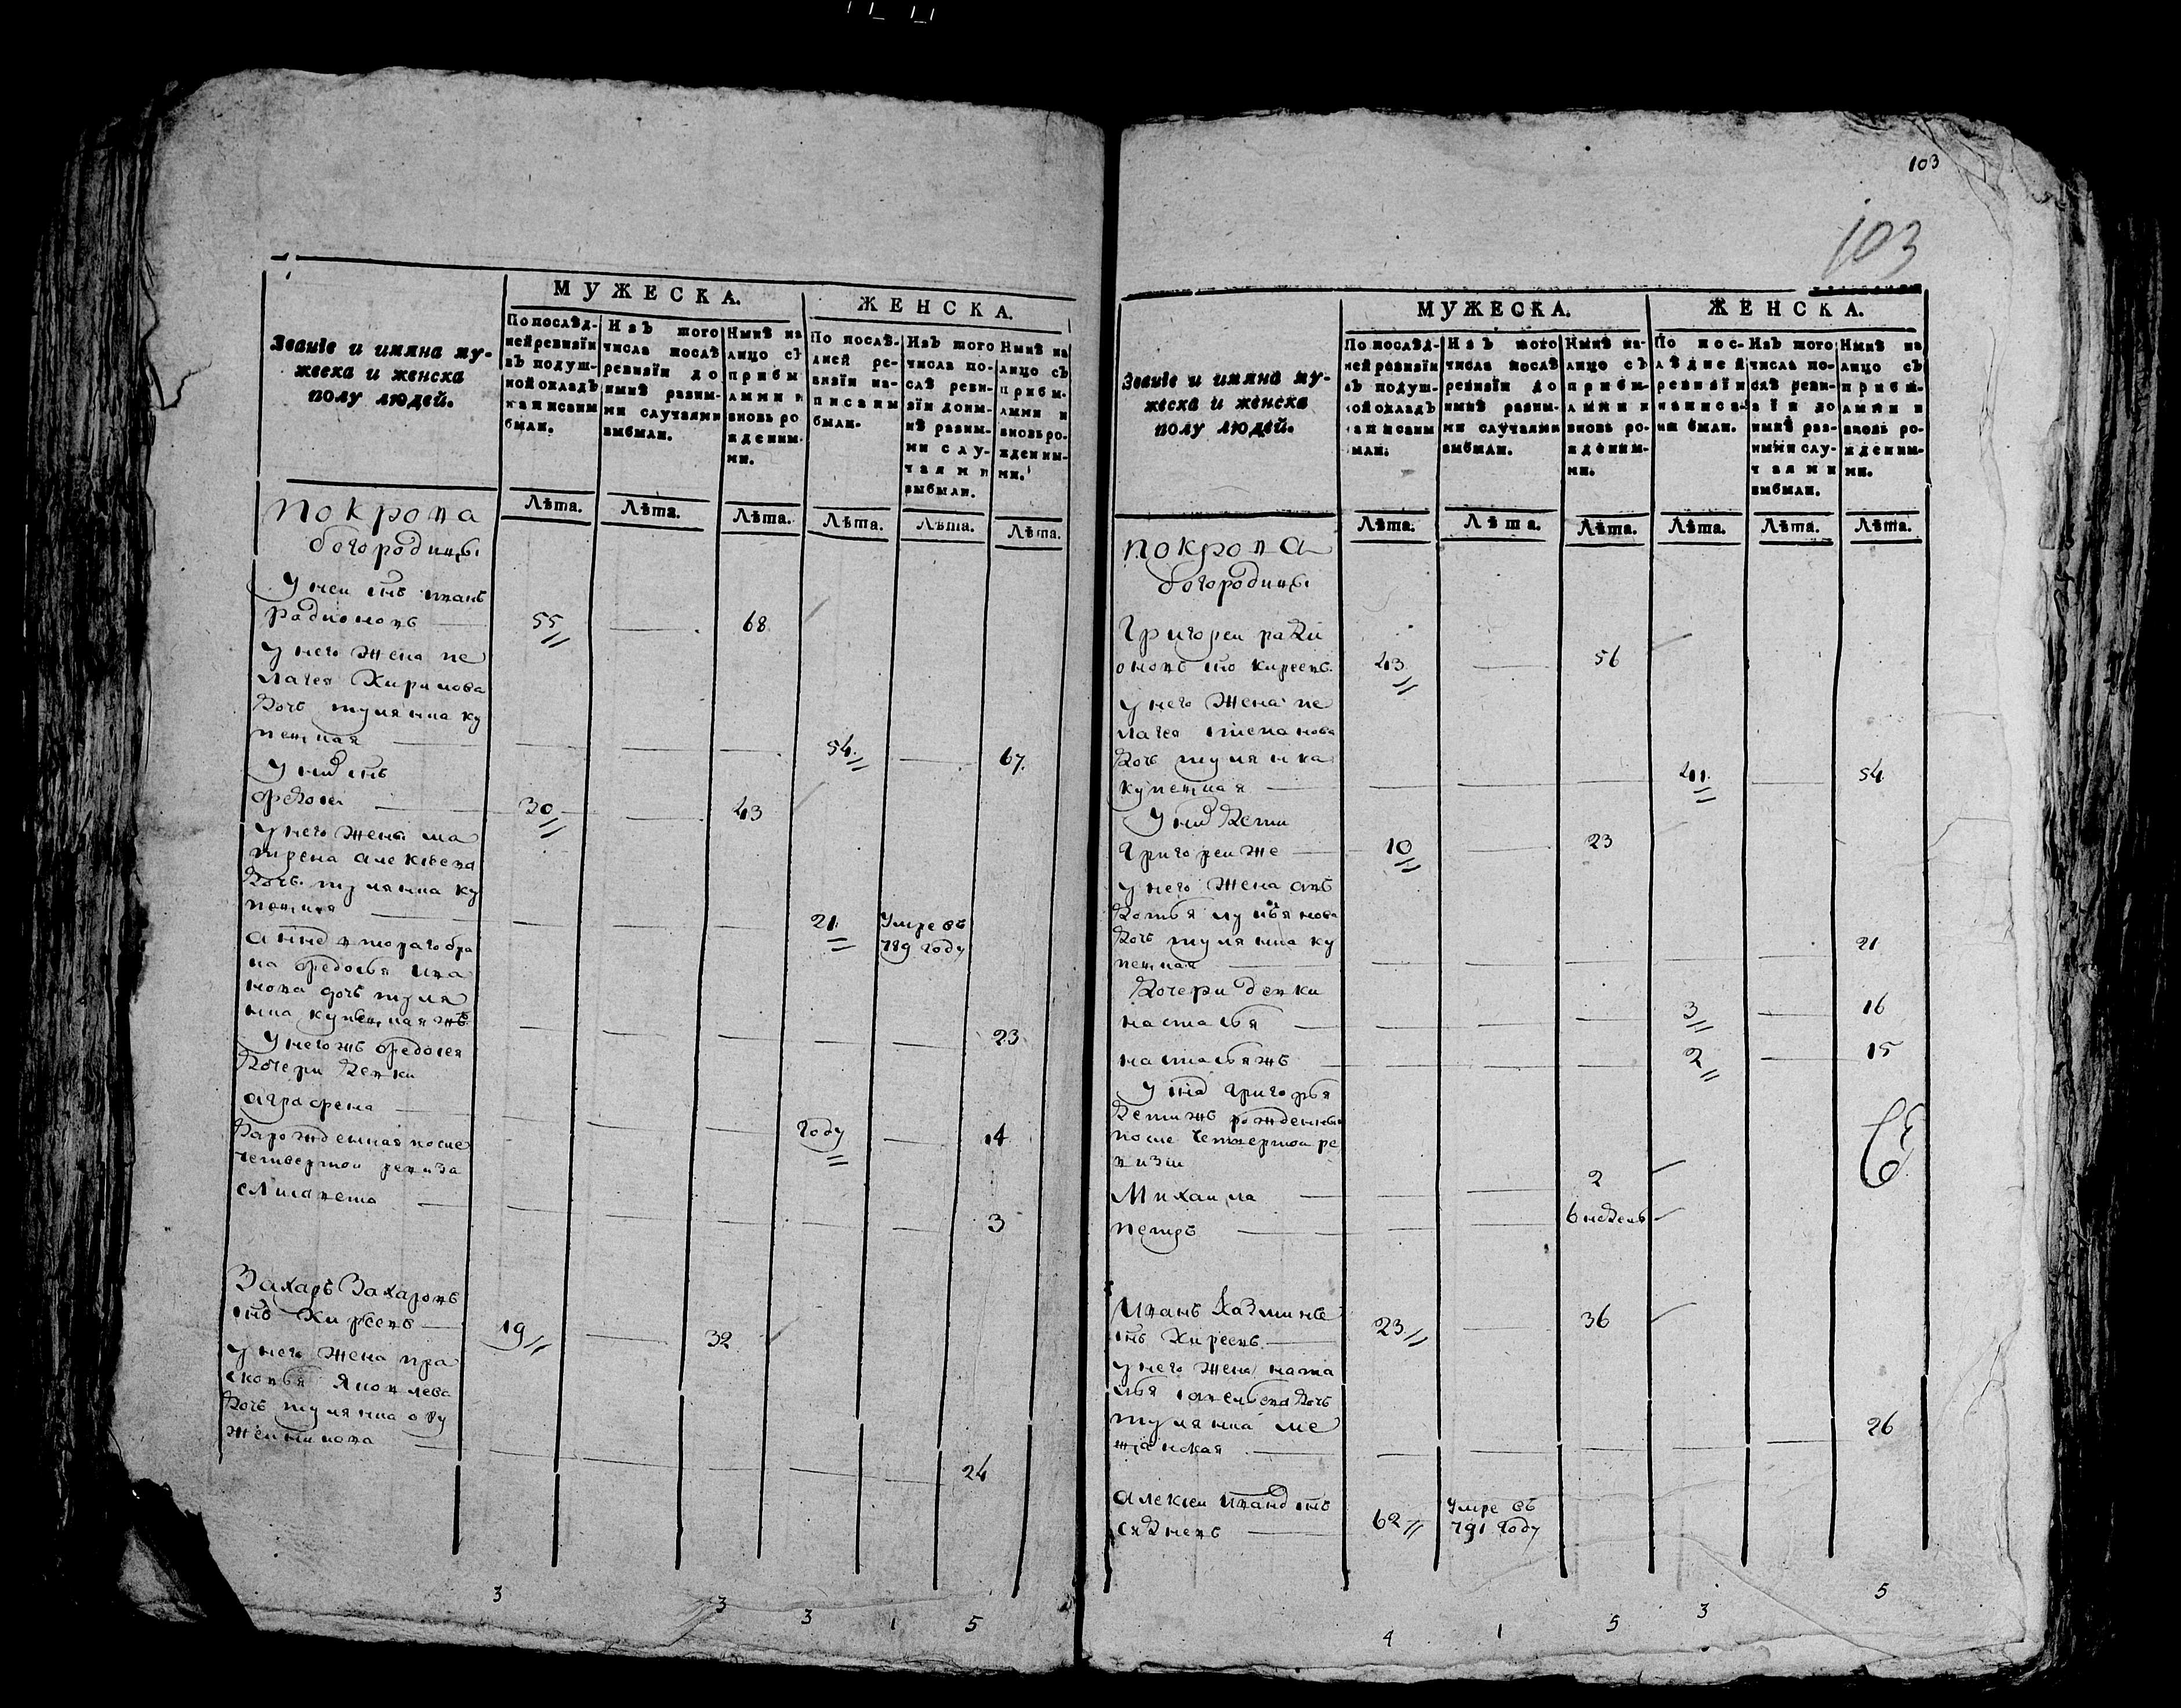 МУЖЕСКА.
ЖЕНСКА.
Званіе и имяна му-
жеска и женска
полу людей.
По послѣд-
ней ревизіи
въ подуш-
ной окладъ
написаны
были.
Изъ того
числа послѣ
ревизіи до
нынѣ разны-
ми случаями
выбыли.
Нынѣ на
лицо съ
прибы-
лыми и
вновь ро
жденны-
ми.
По послѣ-
дней ре-
визіи на-
писаны
были.
Изъ того
числа по-
слѣ реви-
зіи доны-
нѣ разны-
ми слу-
чаями
выбыли.
Нынѣ на
лицо съ
прибы-
лыми и
вновь ро-
жденны-
ми.
Лѣта. Лѣта. Лѣта. Лѣта. Лѣта. Лѣта.
покрова
богородицы
У неи снъ иванъ
радионовъ 55 68
у него жена пе
лагея Кирилова
дочь тулянина ку
пецкая 54 67
У них снъ
федосеи 30 43
у него жена ма
трена алексеева
дочь тулянина ку
пецкая 21 Умре въ
789 году
а нне второго бра
ка федосья ива
нова дочь туля
нина купецкая жъ 23
У него жъ федосея
дочери девки
аграфена году 14
Зарожденная после
четвертои ревизи
елисавета 3
Захаръ Захаровъ
снъ Киреевъ 19 32
у него жена пра
сковья Яковлева
дочь тулянина ору
жеиникова 24
3 3 3 1 5
103
103
МУЖЕСКА.
ЖЕНСКА.
Званіе и имяна му-
жеска и женска
полу людей.
По послѣд-
ней ревизіи
въ подуш-
ной окладъ
написаны
были.
Изъ того
числа послѣ
ревизіи до
нынѣ разны-
ми случаями
выбыли.
Нынѣ на-
лицо съ
прибы-
лыми и
вновь ро-
жденны-
ми.
По пос-
лѣдней
ревизіи
написа-
ны были.
Изъ того
числа по-
слѣ реви-
зіи до
нынѣ раз-
ными слу-
чаями
выбыли.
Нынѣ на
лицо съ
прибы-
лыми и
вновь ро-
жденны-
ми.
Лѣта. Лѣта. Лѣта. Лѣта. Лѣта. Лѣта.
покрова
богородицы
Григореи ради
оновъ снъ киреевъ 43 56
у него жена пе
лагея степанова
дочь тулянина
купецкая 41 54
У них дети
Григореи же 10 23
у него жена авъ
дотья лукьянова
дочь тулянина ку
пецкая 21
дочери девки
настасья 3 16
настасья жъ 2 15
У сна григорья
дети жъ рожденныи
после четвертои ре
визии
Михаила 2
петръ 6 недель
Иванъ Казминъ
снъ Киреевъ 23 36
у него жена ната
лья савельева дочь
тулянина ме
щанская 26
алексеи иванов снъ
62 Умре въ
791 году
4 1 5 3 5